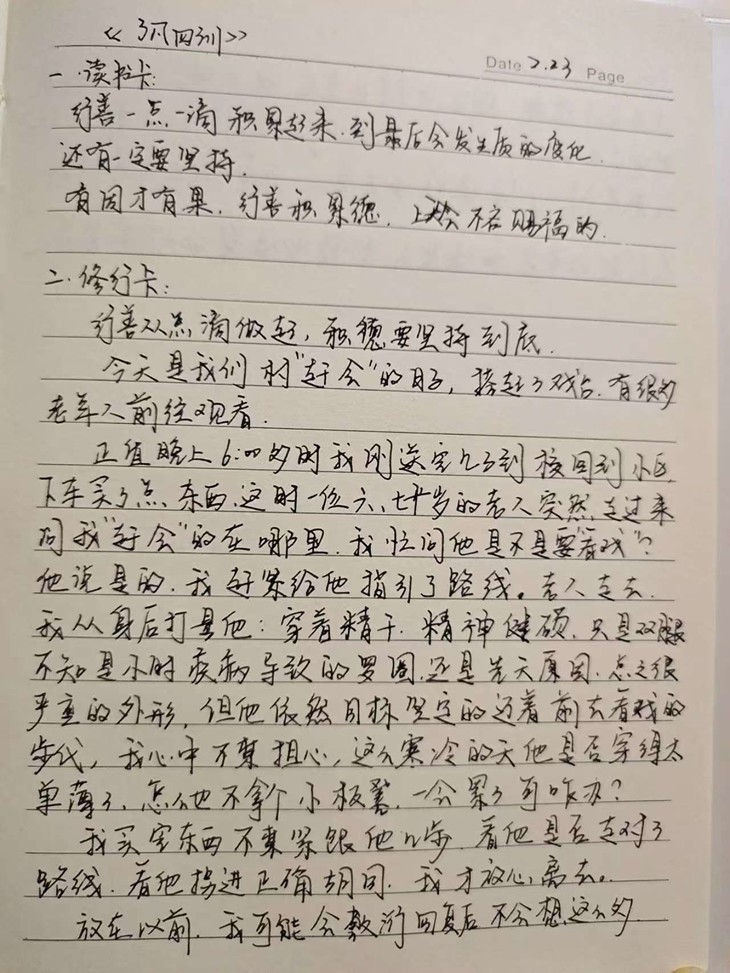 《了凡四训》
Date 2.23 Page
一.读书卡:
行善一点一滴积累起来.到最后会发生质的变化.
还有一定要坚持.
有因才有果.行善积累德.上天会不吝赐福的.
二.修行卡:
行善从点滴做起,积德要坚持到底.
今天是我们村"赶会"的日子,搭起了戏台.有很多
老年人前往观看.
正值晚上6:00多时我刚送完儿子到校回到小区.
下车买了点东西.这时一位六、七十岁的老人突然走过来
问我"赶会"的在哪里.我忙问他是不是要"看戏"?
他说是的.我赶紧给他指引了路线。老人走去.
我从身后打量他:穿着精干.精神健硕.只是双腿
不知是小时疾病导致的罗圈.还是先天原因.总之很
严重的外形,但他依然目标坚定的迈着前去看戏的
步伐,我心中不禁担心,这么寒冷的天他是否穿得太
单薄了,怎么也不拿个小板凳.一会累了可咋办?
我买完东西不禁紧跟他几步.看他是否走对了
路线.看他拐进正确胡同.我才放心离去。
放在以前.我可能会敷衍回复后不会想这么多.